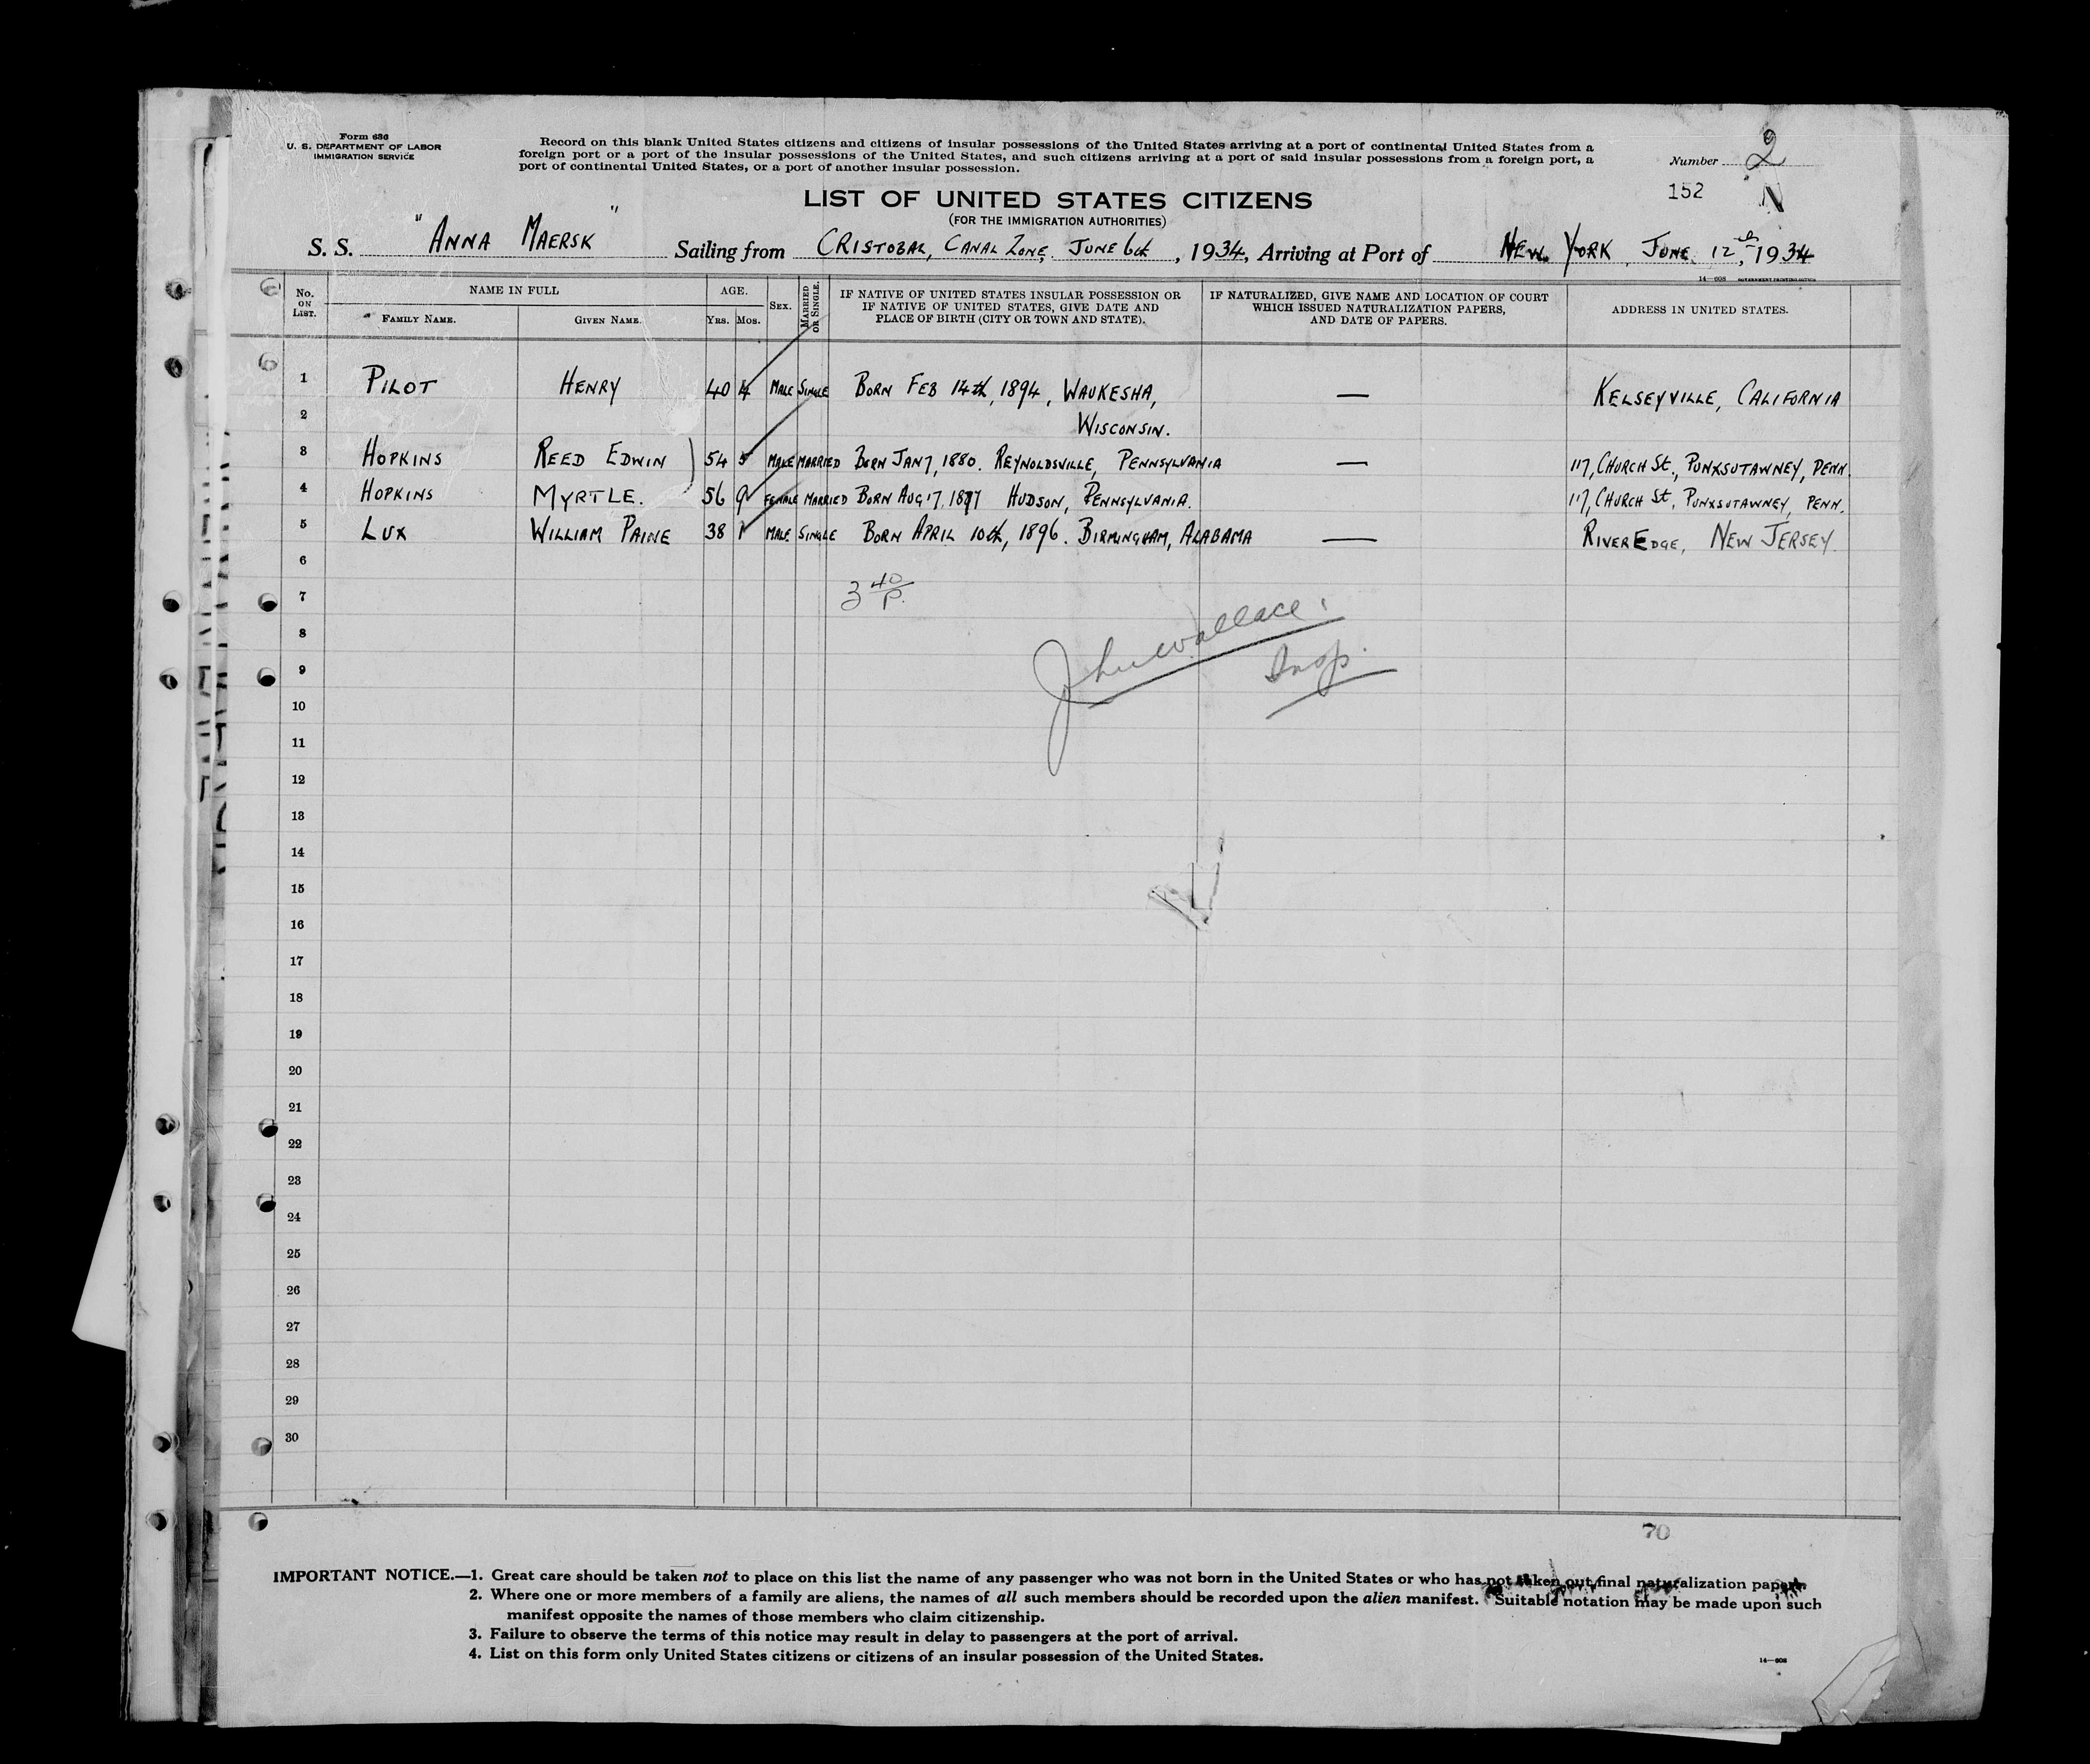 Form 630
U. S. DEPARTMENT OF LABOR
IMMIGRATION SERVICE
Record on this blank United States citizens and citizens of insular possessions of the United States arriving at a port of continental United States from a
foreign port or a port of the insular possessions of the United States, and such citizens arriving at a port of said insular possessions from a foreign port, a
port of continental United States, or a port of another insular possession.
Number 2
152 N
LIST OF UNITED STATES CITIZENS
(FOR THE IMMIGRATION AUTHORITIES)
S. S. "ANNA MAERSK" Sailing from CRISTOBAL, CANAL ZONE, JUNE 6th, 1934, Arriving at Port of NEW YORK, JUNE 12th, 1934
14—608 GOVERNMENT PRINTING OFFICE
No. ON LIST. NAME IN FULL AGE. SEX. MARRIED OR SINGLE. IF NATIVE OF UNITED STATES INSULAR POSSESSION OR IF NATIVE OF UNITED STATES, GIVE DATE AND PLACE OF BIRTH (CITY OR TOWN AND STATE). IF NATURALIZED, GIVE NAME AND LOCATION OF COURT WHICH ISSUED NATURALIZATION PAPERS, AND DATE OF PAPERS. ADDRESS IN UNITED STATES.
FAMILY NAME. GIVEN NAME. YRS. MOS.
1 PILOT HENRY 40 4 MALE SINGLE BORN FEB 14th, 1894, WAUKESHA, — KELSEYVILLE, CALIFORNIA
2 WISCONSIN.
3 HOPKINS REED EDWIN 54 5 MALE MARRIED BORN JAN 7, 1880. REYNOLDSVILLE, PENNSYLVANIA — 117, CHURCH St., PUNXSUTAWNEY, PENN.
4 HOPKINS MYRTLE. 56 9 FEMALE MARRIED BORN AUG 17, 1877 HUDSON, PENNSYLVANIA. 117, CHURCH St, PUNXSUTAWNEY, PENN.
5 LUX WILLIAM PAINE 38 1 MALE SINGLE BORN APRIL 10th, 1896. BIRMINGHAM, ALABAMA — RIVER EDGE, NEW JERSEY.
6
7 3 40 P.
8 John Wallace
9 Insp.
10
11
12
13
14
15
16
17
18
19
20
21
22
23
24
25
26
27
28
29
30
70
IMPORTANT NOTICE.—1. Great care should be taken not to place on this list the name of any passenger who was not born in the United States or who has not taken out final naturalization papers.
2. Where one or more members of a family are aliens, the names of all such members should be recorded upon the alien manifest. Suitable notation may be made upon such
manifest opposite the names of those members who claim citizenship.
3. Failure to observe the terms of this notice may result in delay to passengers at the port of arrival.
4. List on this form only United States citizens or citizens of an insular possession of the United States.
14—608